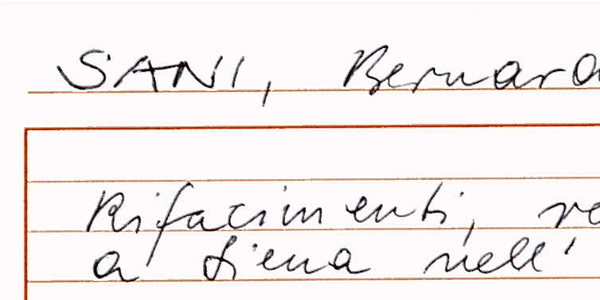 SANI, Bernard
Rifacimenti, re
a Siena nell'